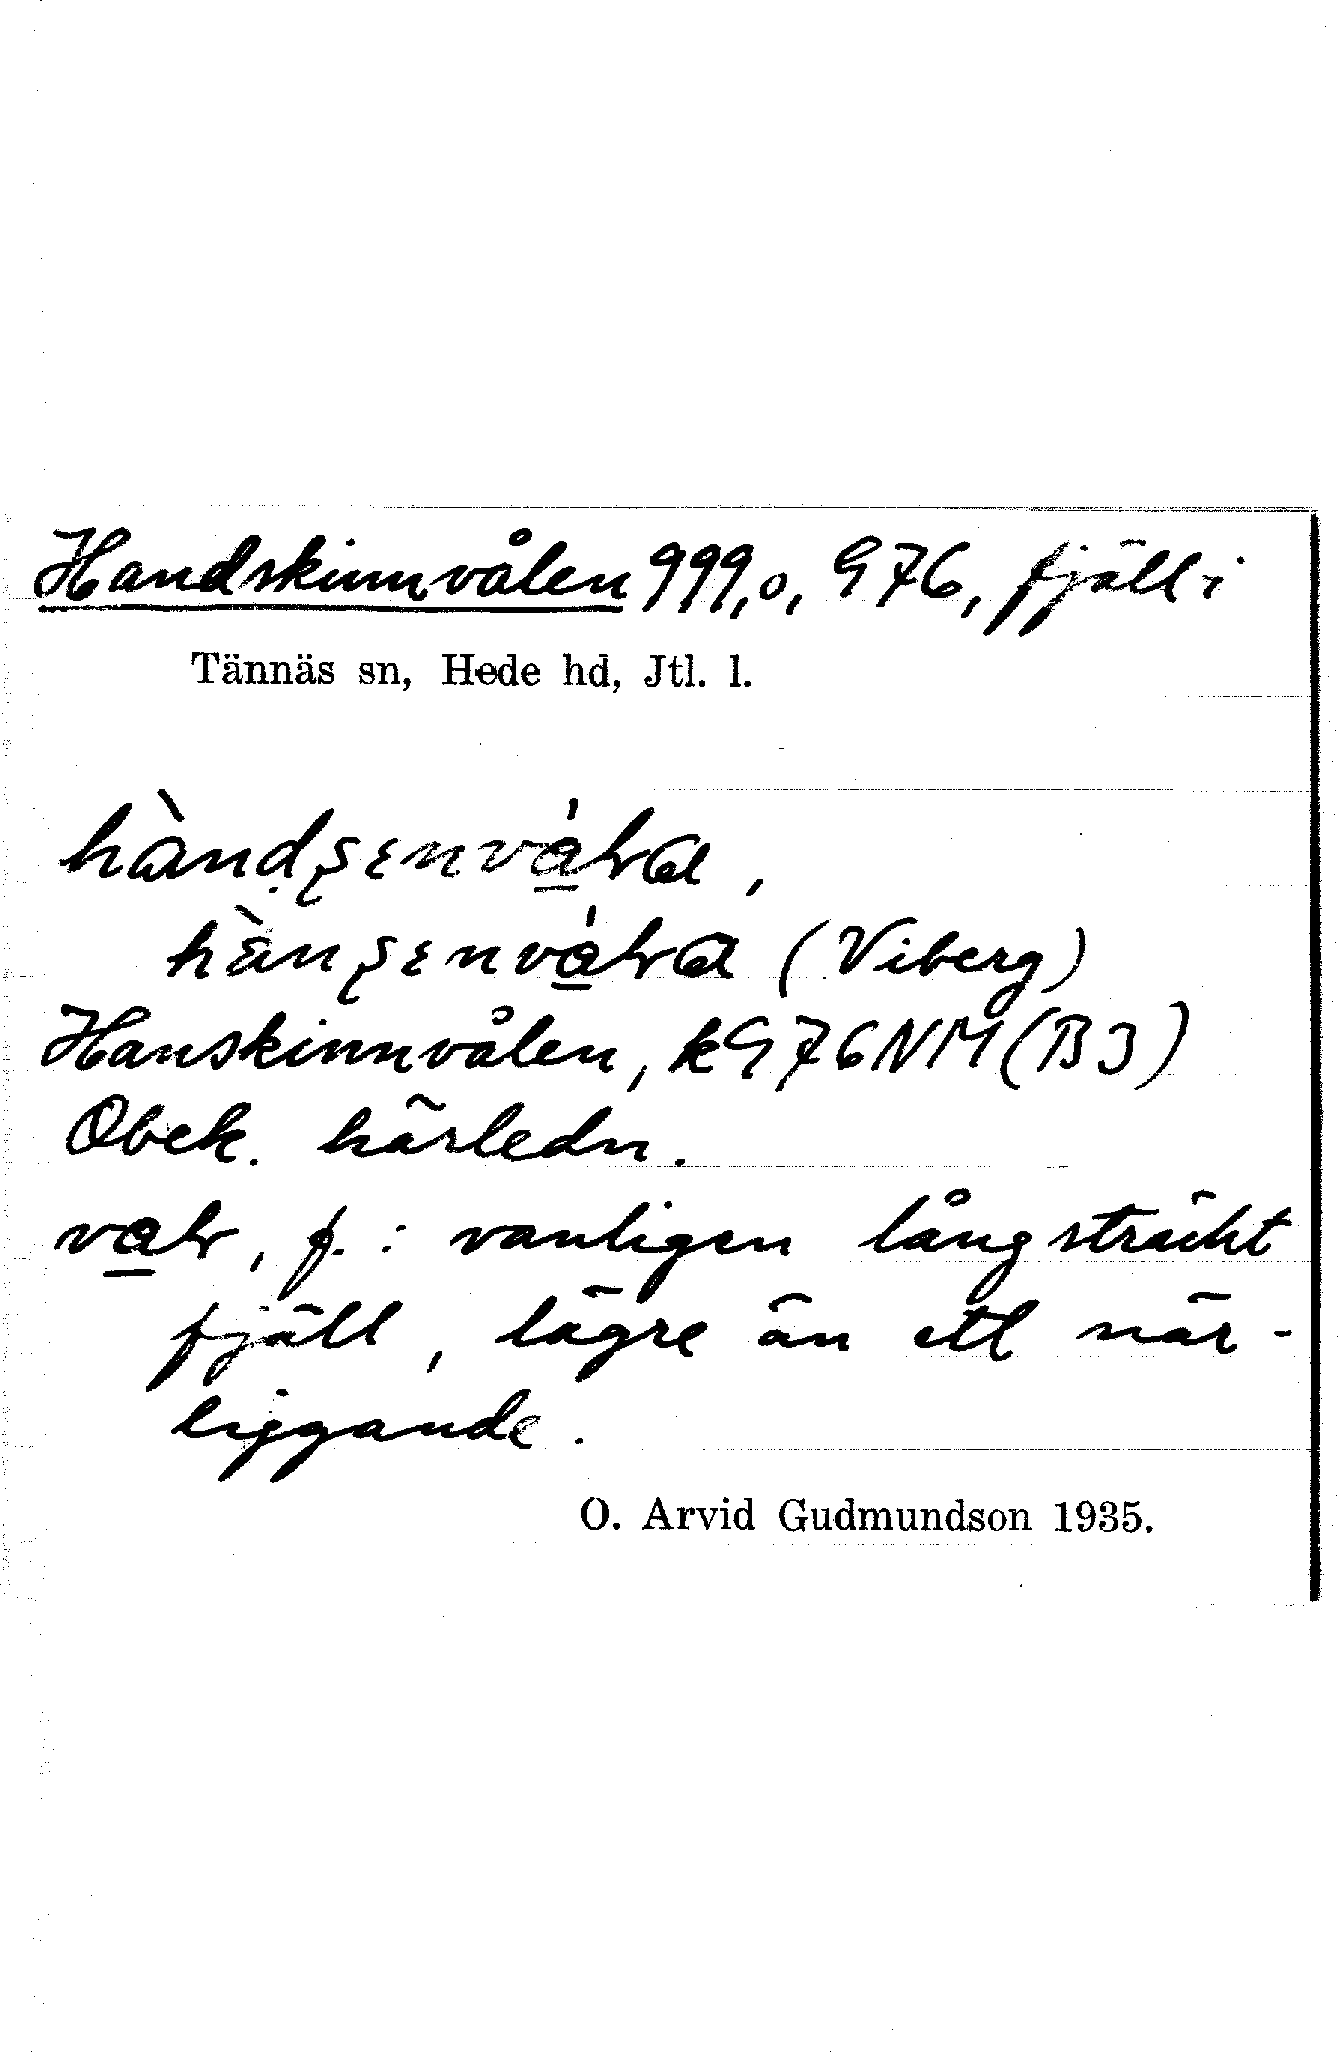 Handskinnvålen 999,0, G76, fjäll i
Tännäs sn, Hede hd, Jtl. l.
(Viberg)
Hanskinnvålen, kG76NM(B3)
Obek. härledn.
f.: vanligen långsträckt
fjäll, lägre än ett när-
liggande.
O. Arvid Gudmundson 1935.